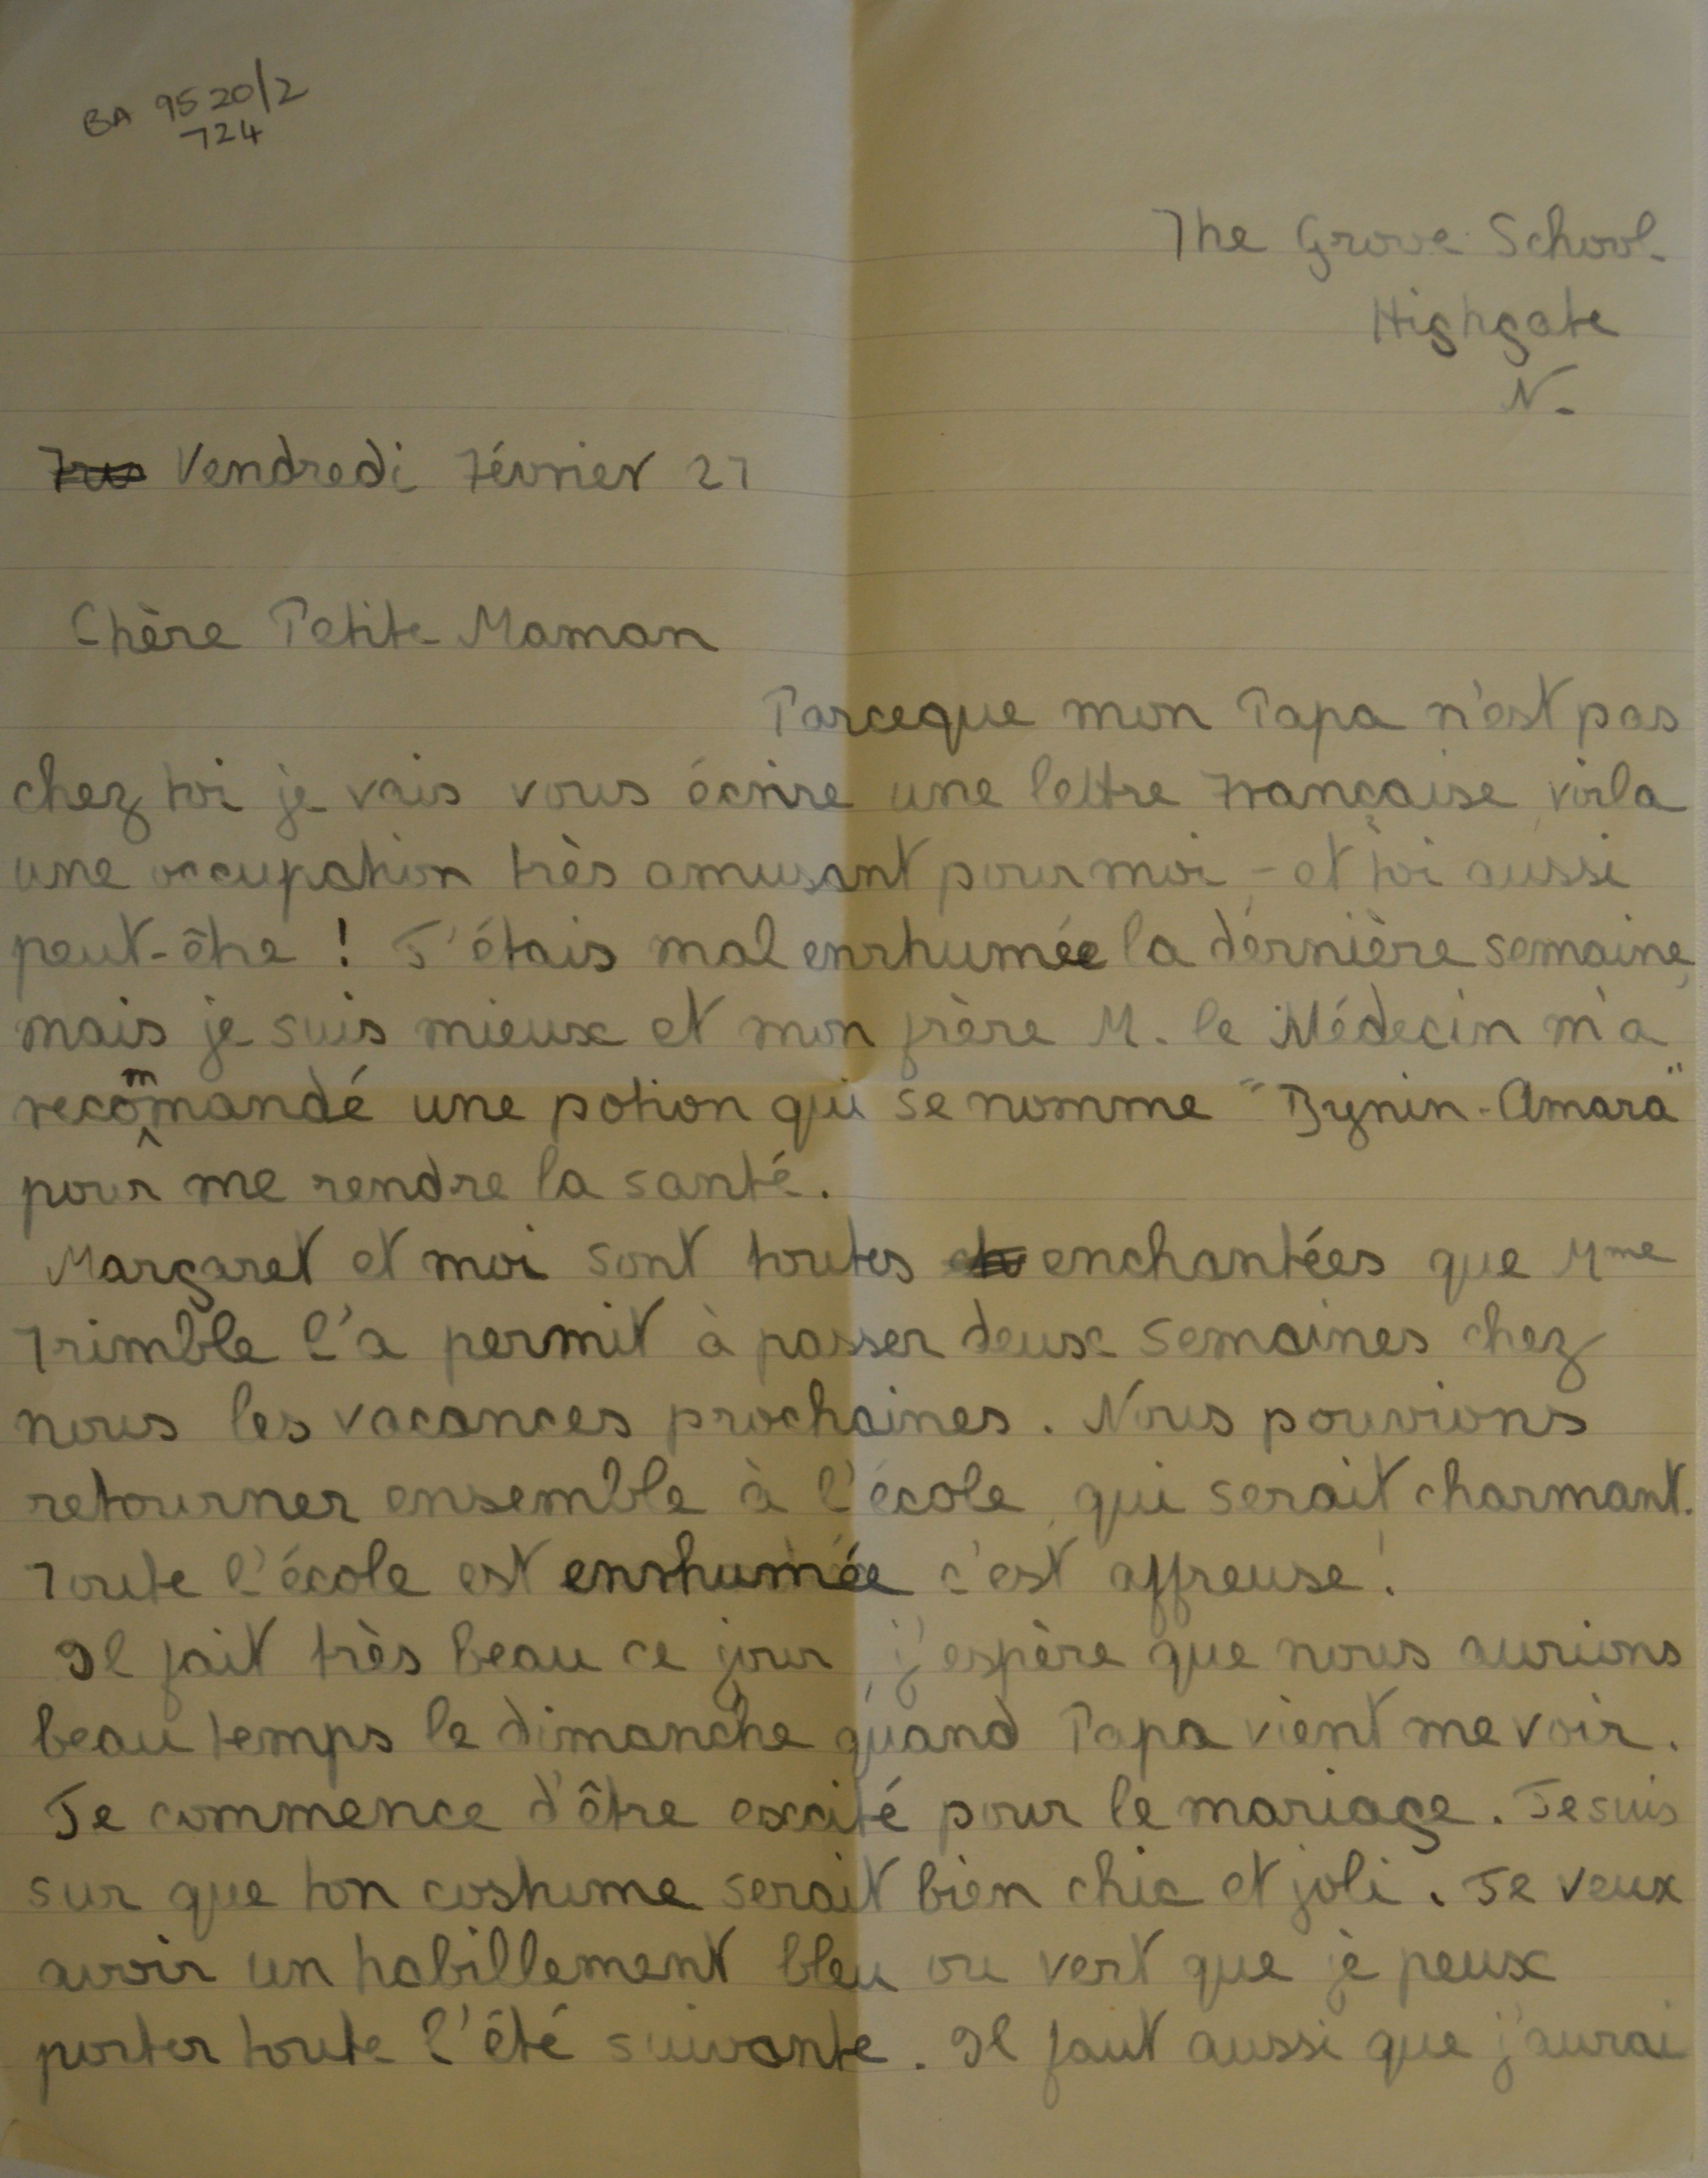 BA 9520/2
724
The Grove School.
Highgate
N.
Vendredi Février 27
Chère Petite Maman
Parceque mon Papa n'est pas
chez toi je vais vous écrire une lettre Française, voila
une occupation très amusant pour moi - et toi aussi
peut-être ! J'étais mal enrhumée la dernière semaine,
mais je suis mieux et mon frère M. le Médecin m'a
recommandé une potion qui se nomme "Bynin-Amara"
pour me rendre la santé.
Margaret et moi sont toutes enchantées que Mme
Trimble l'a permit à passer deux semaines chez
nous les vacances prochaines. Nous pouvions
retourner ensemble à l'école, qui serait charmant.
Toute l'école est enrhumée c'est affreuse!
Il fait très beau ce jour, j'espère que nous aurions
beau temps le dimanche quand Papa vient me voir.
Je commence d'être excité pour le mariage. Je suis
sur que ton costume serait bien chic et joli. Je veux
avoir un habillement bleu ou vert que je peux
porter toute l'été suivante. Il faut aussi que j'aurai